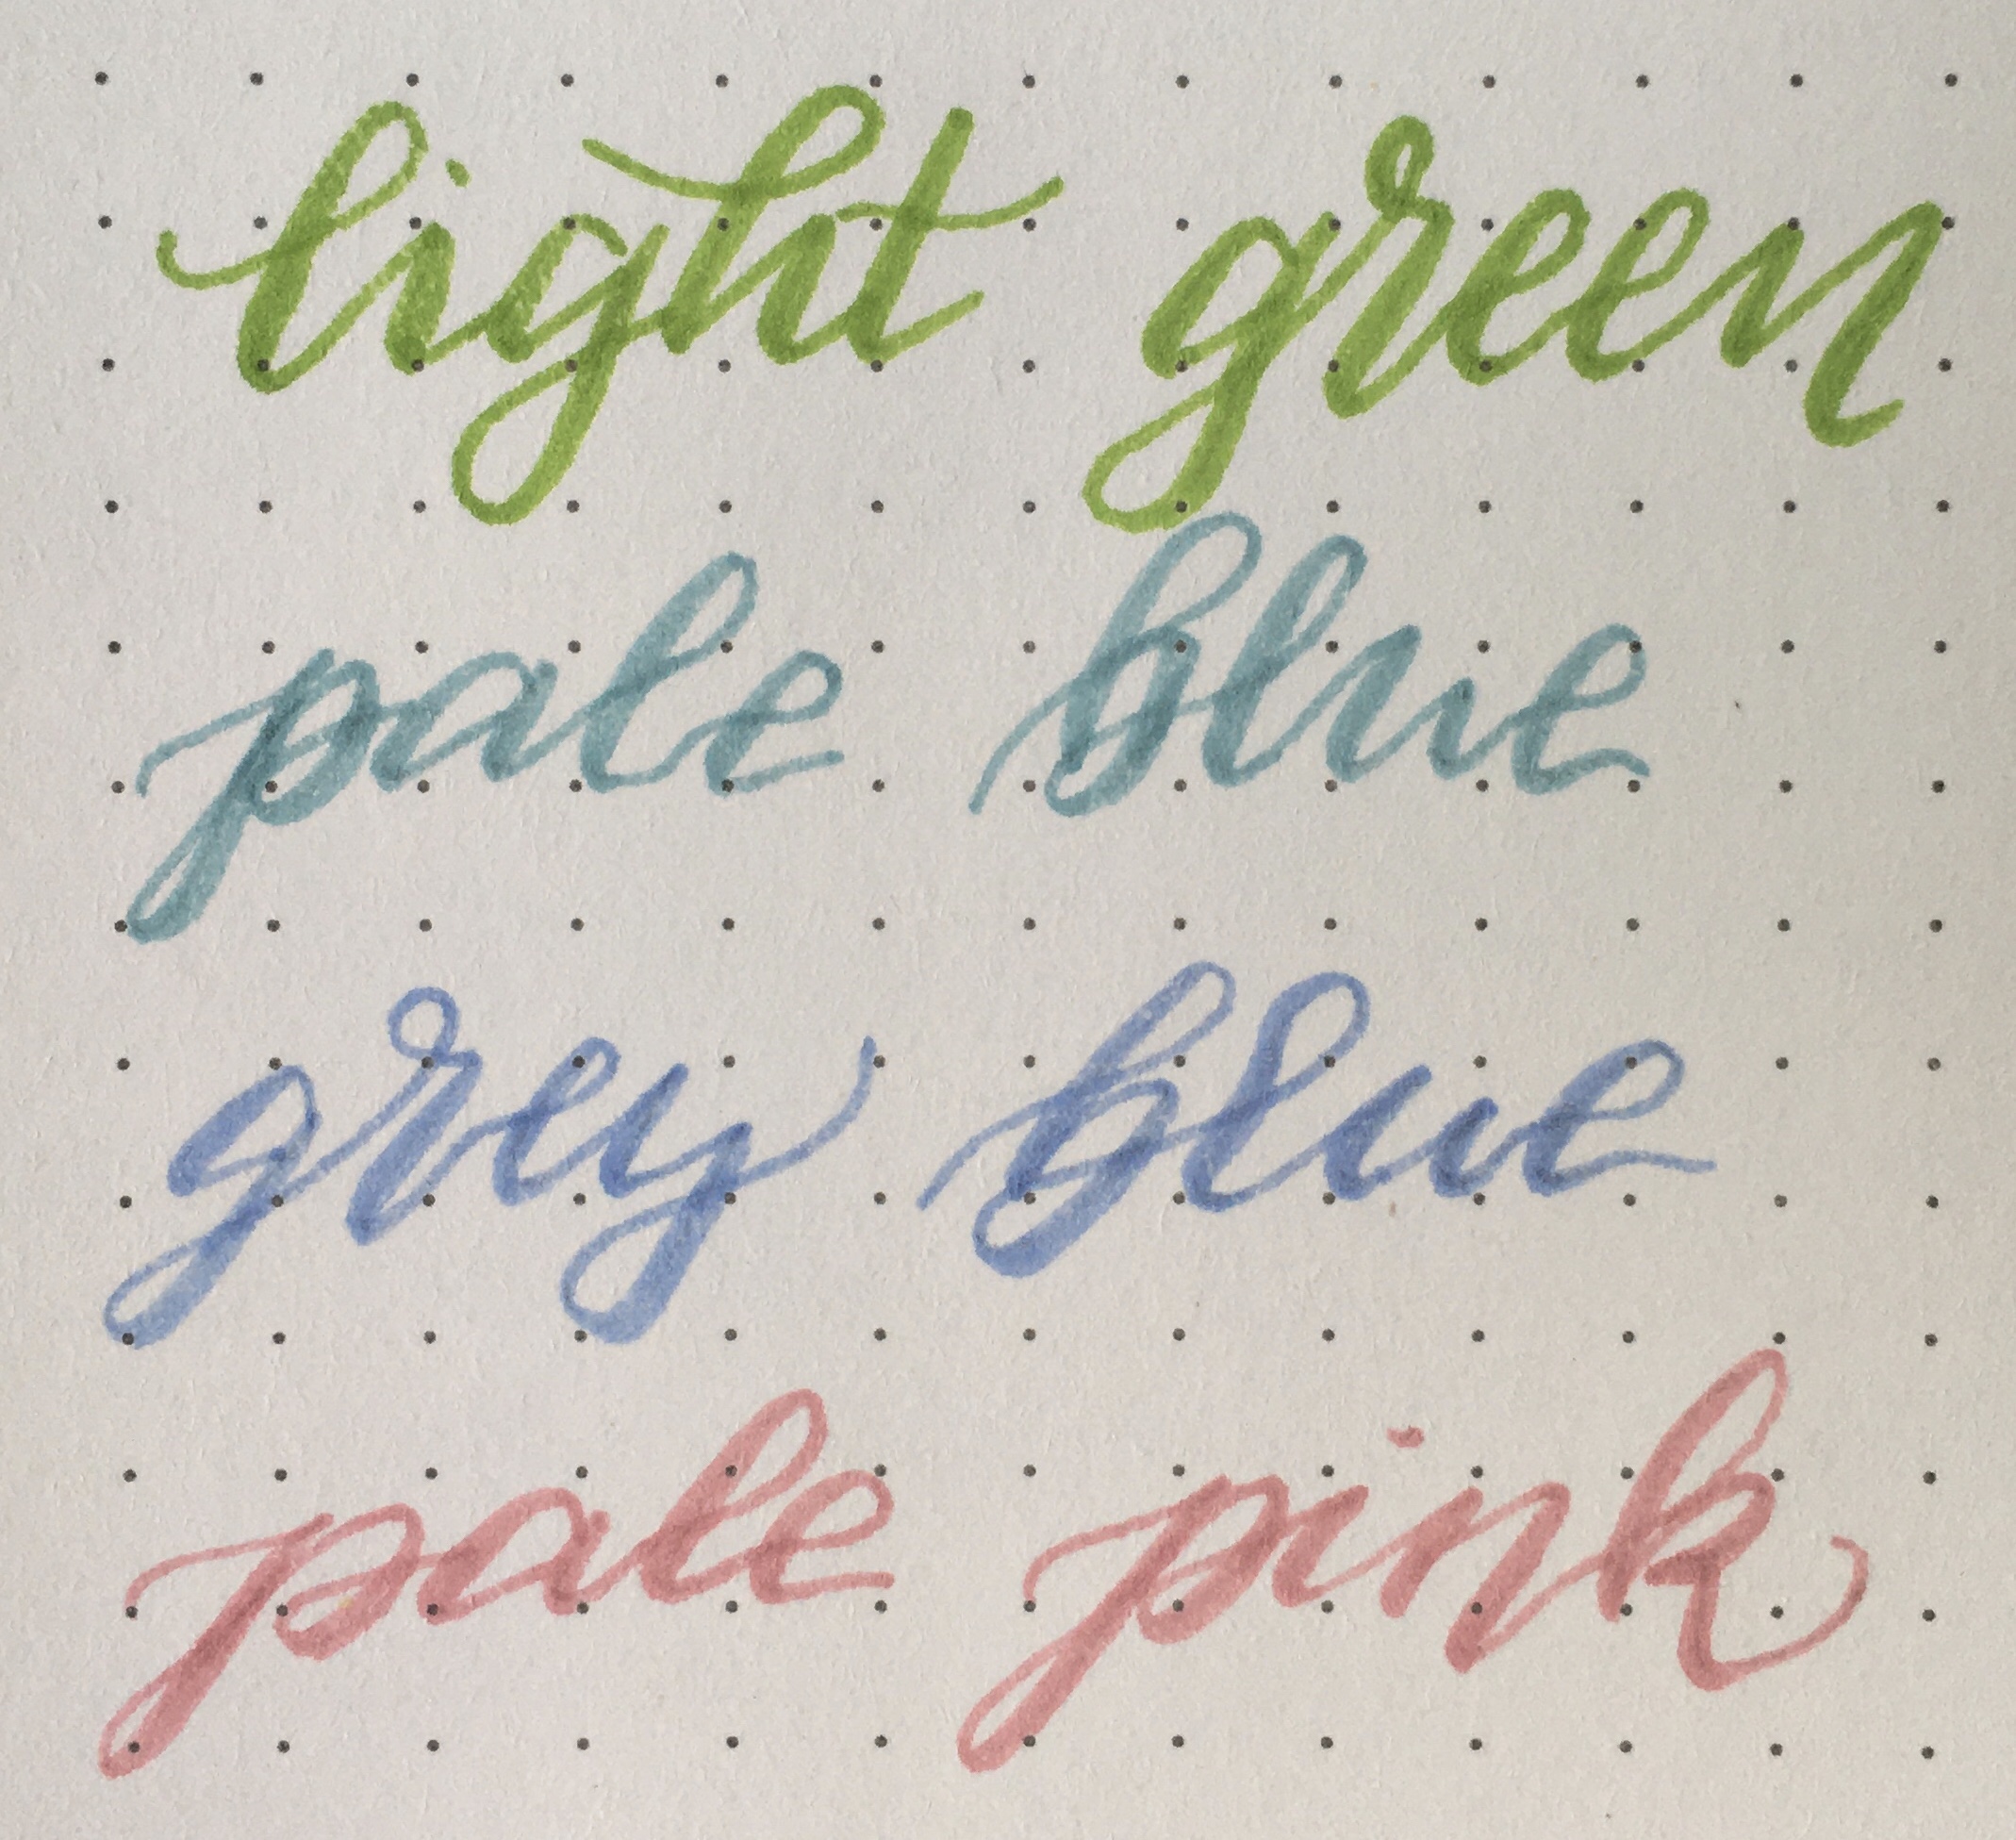 light green
pale blue
grey blue
pale pink